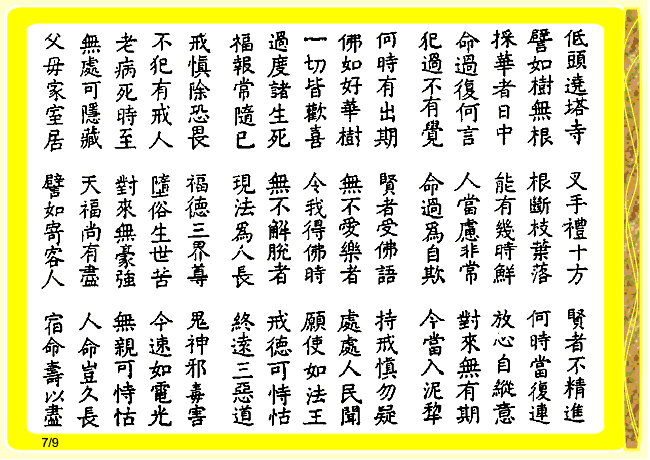 低頭遶塔寺 叉手禮十方 賢者不精進
譬如樹無根 根斷枝葉落 何時當復連
採華者日中 能有幾時鮮 放心自縱意
命過復何言 人當慮非常 對來無有期
犯過不有覺 命過爲自欺 今當入泥犂
何時有出期 賢者受佛語 持戒慎勿疑
佛如好華樹 無不愛樂者 處處人民聞
一切皆歡喜 令我得佛時 願使如法王
過度諸生死 無不解脫者 戒德可恃怙
福報常隨已 現法爲人長 終遠三惡道
戒慎除恐畏 福德三界尊 鬼神邪毒害
不犯有戒人 墮俗生世苦 今速如電光
老病死時至 對來無豪強 無親可恃怙
無處可隱藏 天福尚有盡 人命豈久長
父母家室居 譬如寄客人 宿命壽以盡
7/9